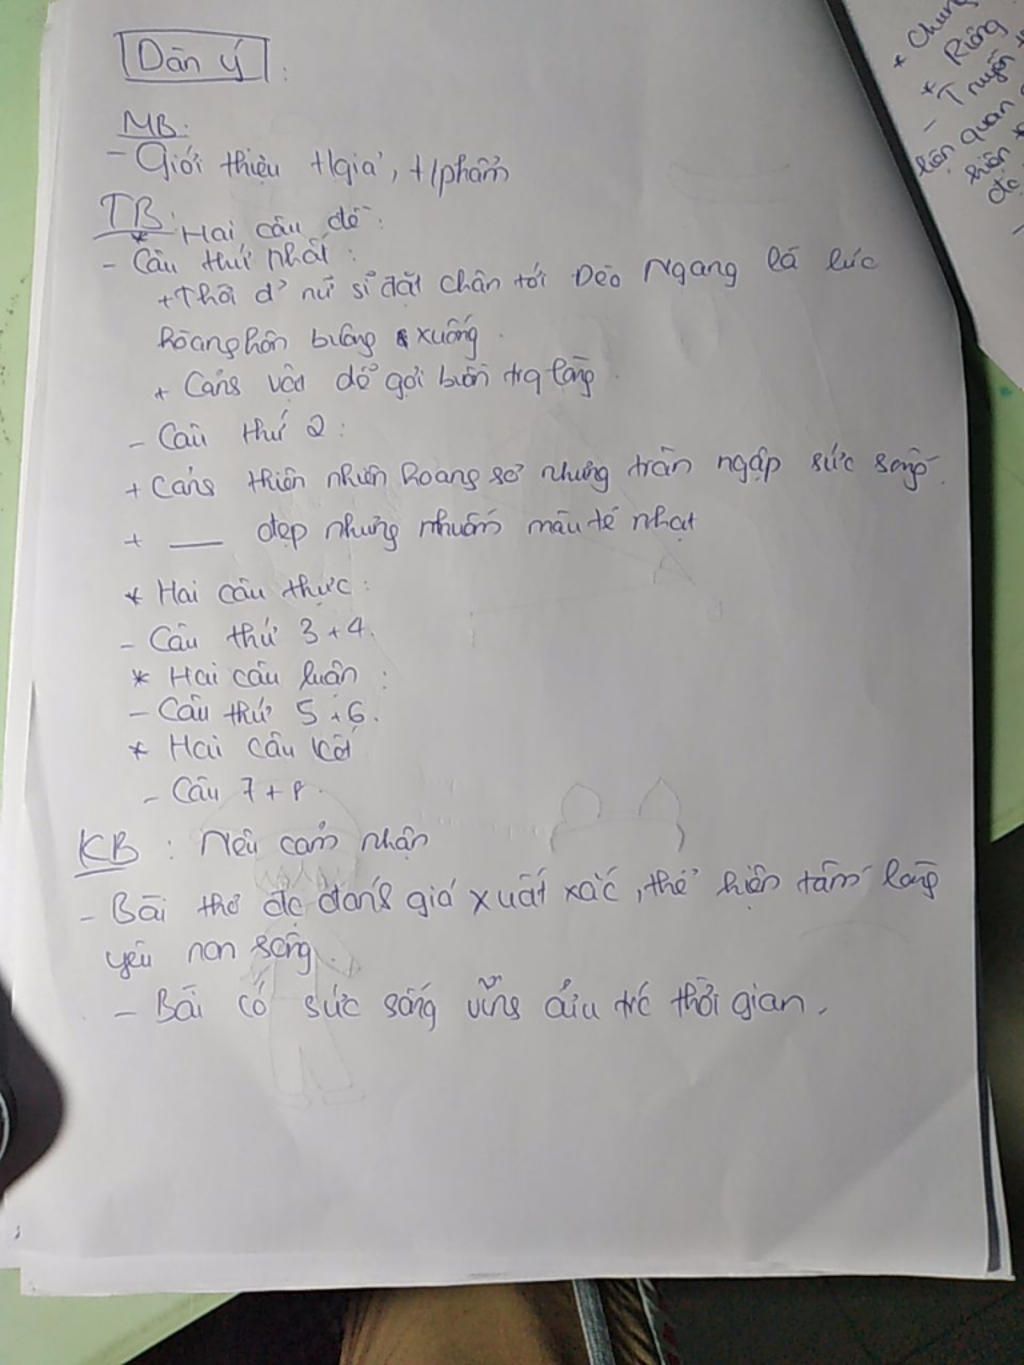 Dàn ý :
MB:
- Giới thiệu t/giả, t/phẩm
TB: * Hai câu đề :
- Câu thứ nhất :
+ Thời đ' nữ sĩ đặt chân tới Đèo Ngang là lúc
hoàng hôn buông xuống.
+ Cảng vật dễ gợi buồn trg lòng.
- Câu thứ 2 :
+ Cảng thiên nhiên hoang sơ nhưng tràn ngập sức sống.
+ ___ đẹp nhưng nhuốm màu tẻ nhạt
* Hai câu thực :
- Câu thứ 3 + 4.
* Hai câu luận :
- Câu thứ 5 + 6.
* Hai câu kết
- Câu 7 + 8.
KB : Nêu cảm nhận
- Bài thơ đc đánh giá xuất xắc, thể hiện tấm lòng
yêu non sông.
- Bài có sức sống vững trc thời gian.
* Chung
* Riêng
- Truyện
liên quan
hiện
đc